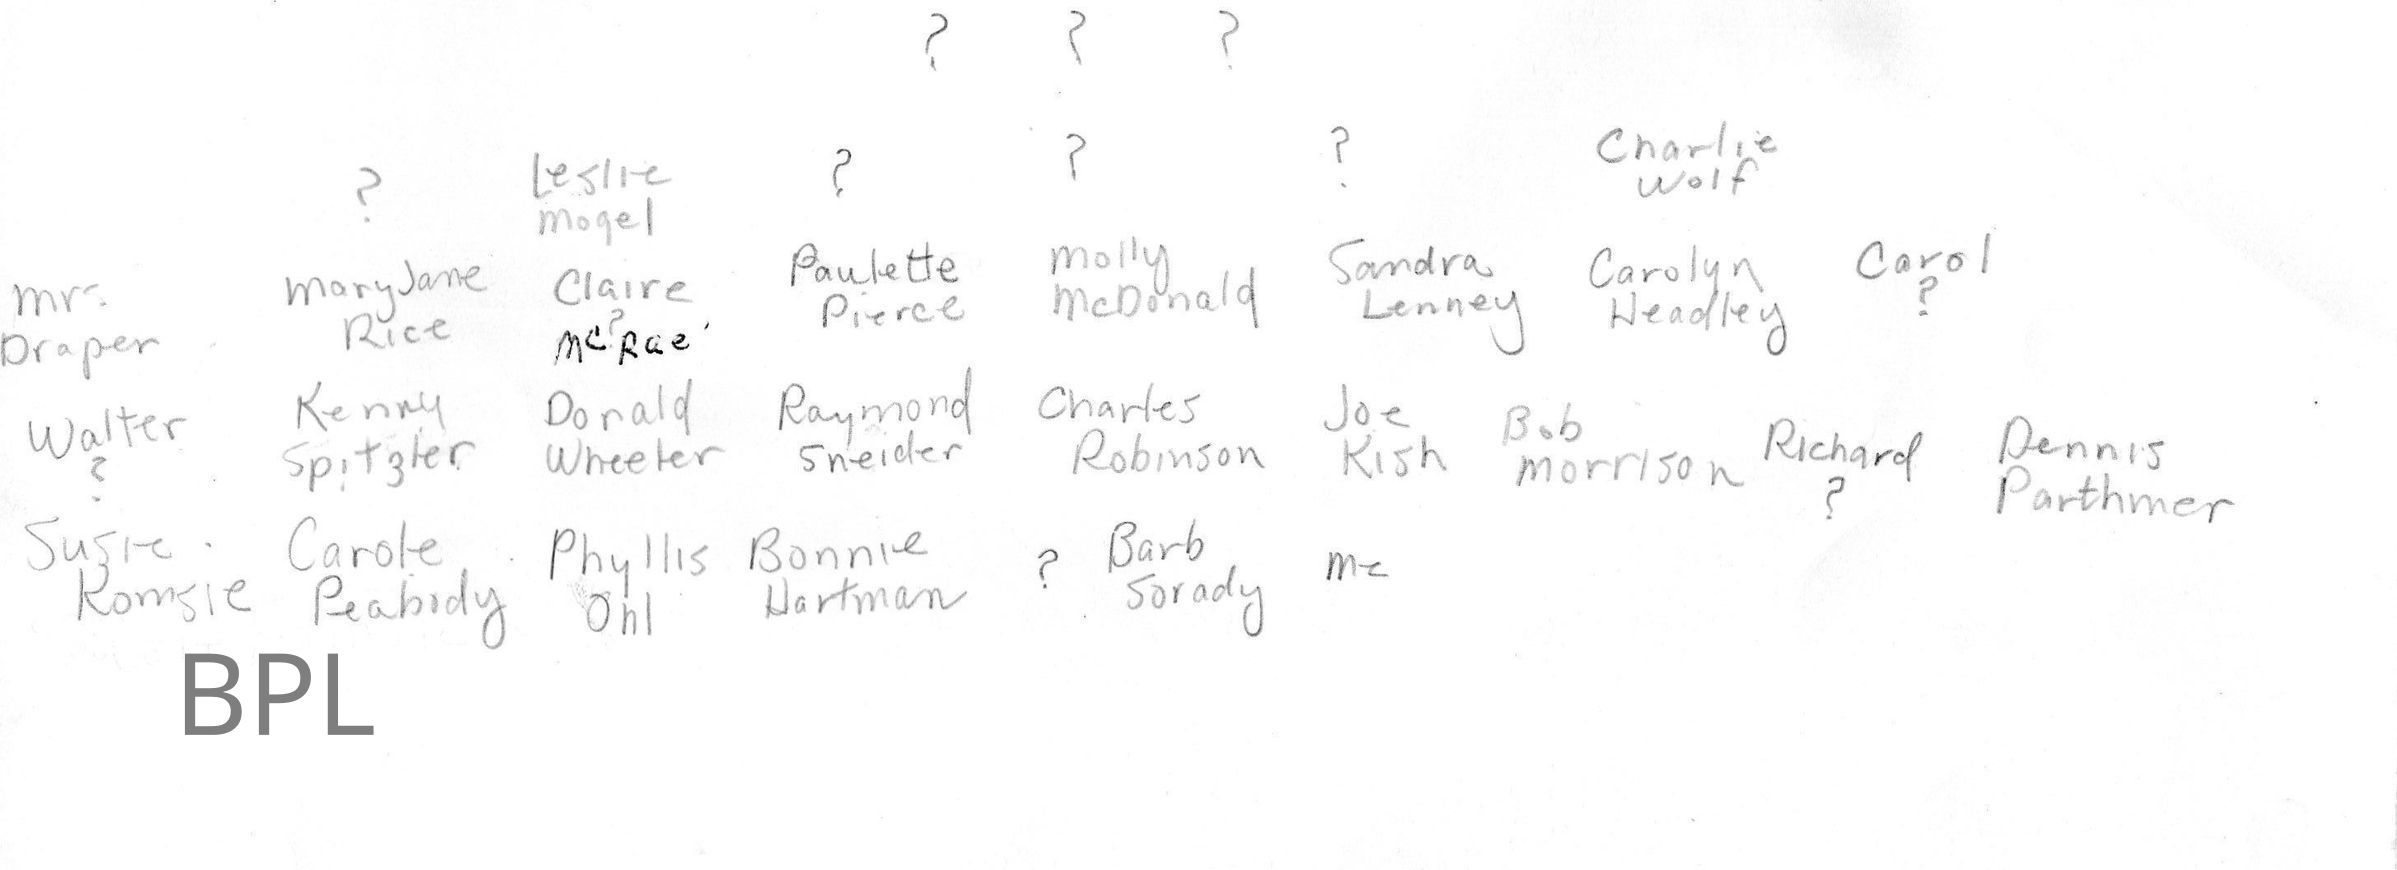 ? ? ?
? Leslie ? ? ? Charlie
Mogel Wolf
Mr. Mary Jane Claire Paulette Molly Sandra Carolyn Carol
Draper Rice ? Pierce McDonald Lenney Headley ?
McRae
Walter Kenny Donald Raymond Charles Joe Bob Richard Dennis
? Spitzler Wheeler Sneider Robinson Kish Morrison ? Parthmer
Susie Carole Phyllis Bonnie ? Barb Me
Romsie Peabody Ohl Hartman Sorady
BPL